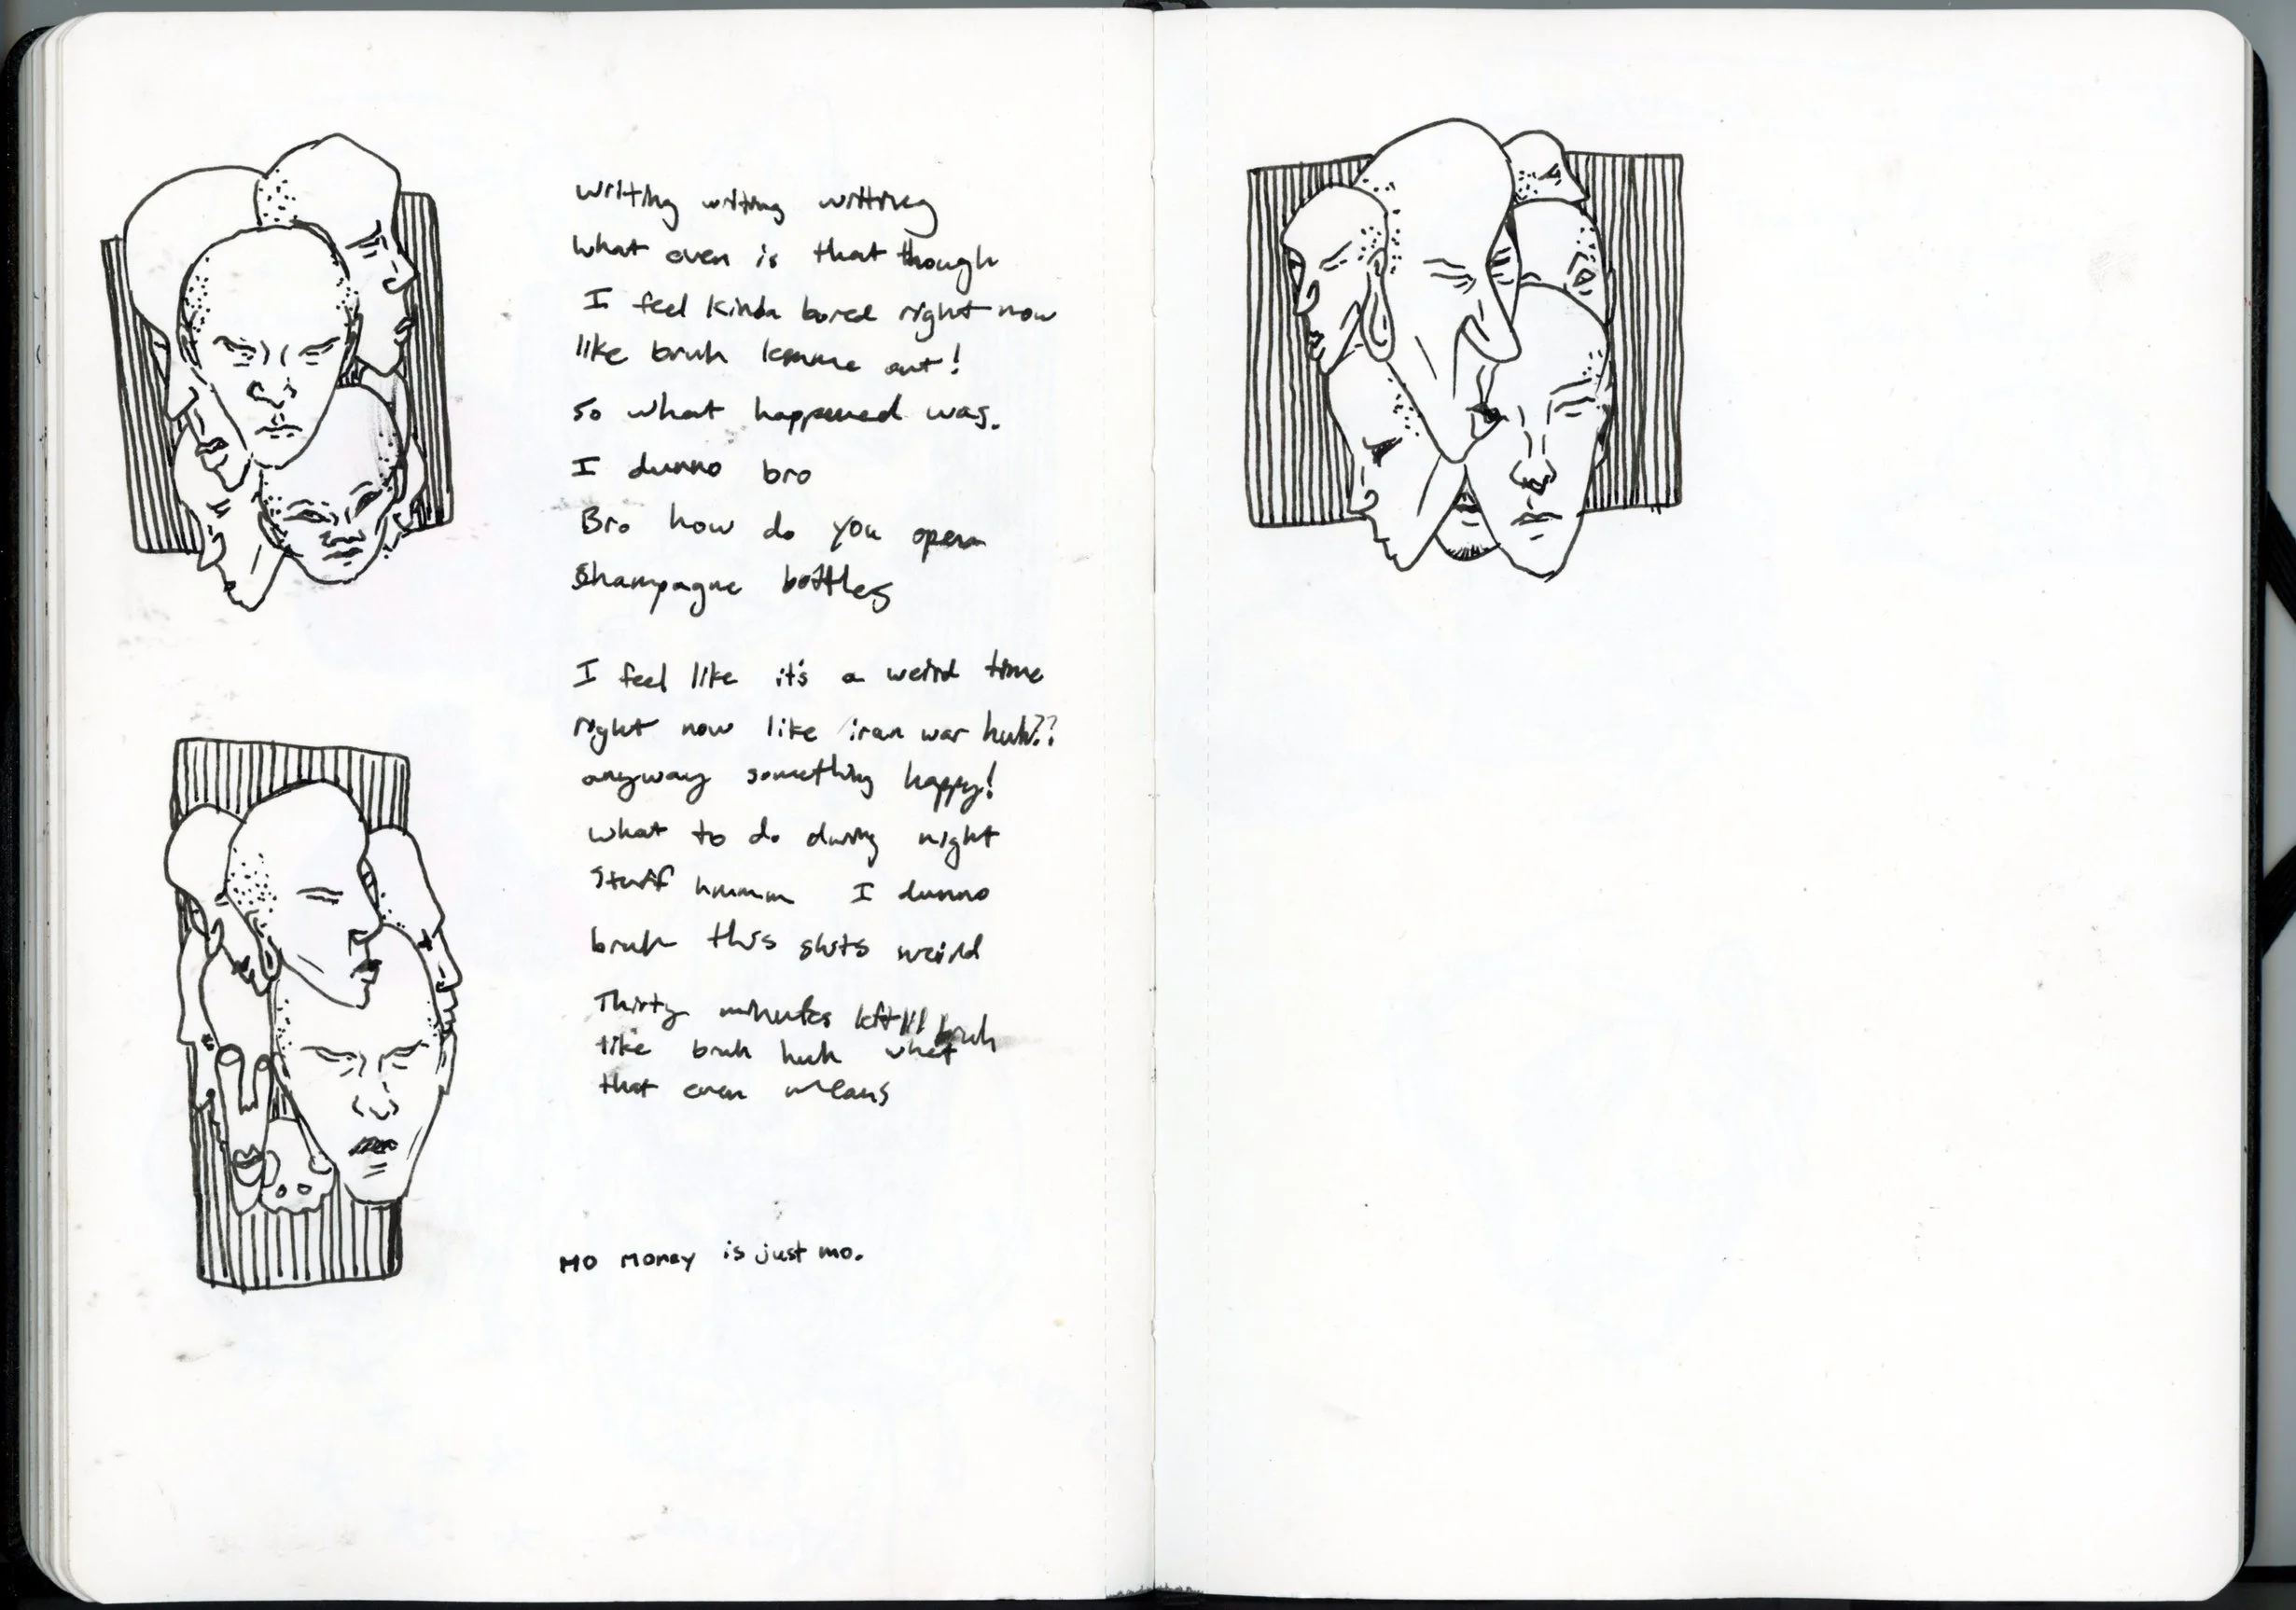 writing writing writting
what even is that though
I feel kinda bored right now
like bruh lemme out!
so what happened was.
I dunno bro
Bro how do you open
shampagne bottles
I feel like it's a weird time
right now like iran war huh??
anyway something happy!
what to do during night
stuff hmmm I dunno
bruh this shits weird
Thirty minutes left!!! bruh
like bruh huh what
that even means
MO MONEY is just mo.